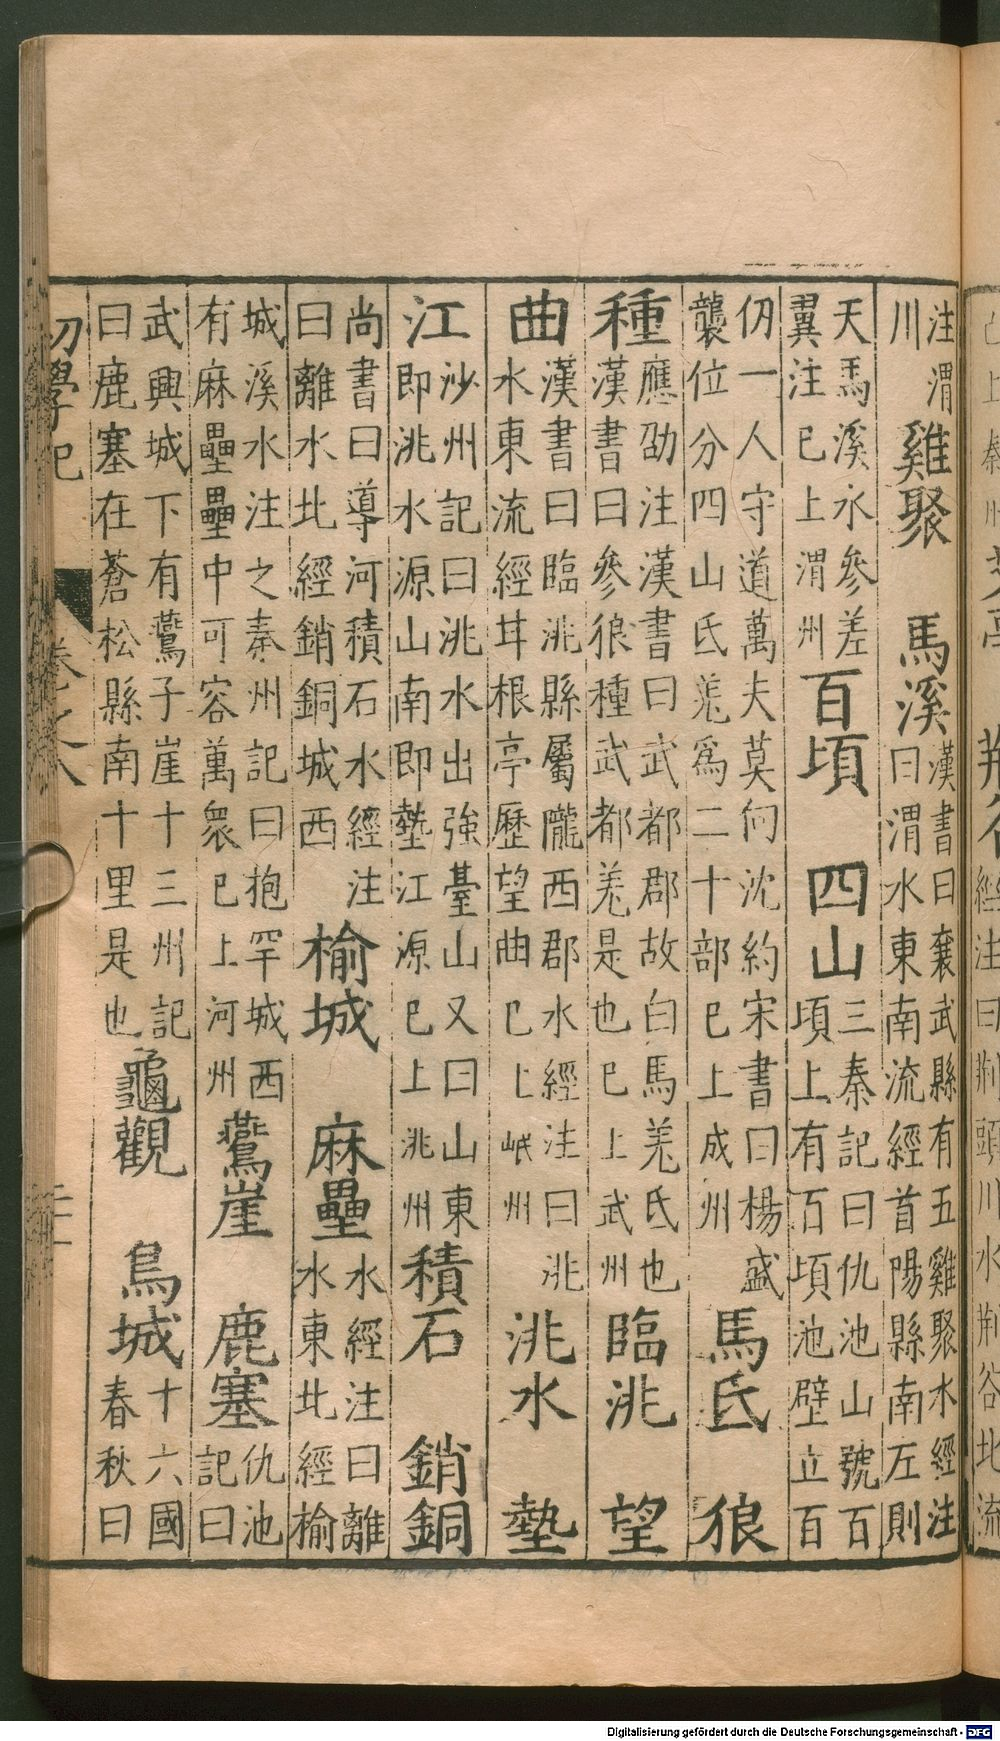 注渭川雞聚　馬溪漢書曰襄武縣有五雞聚水經注曰渭水東南流經首陽縣南左則
天馬溪水參差翼注已上渭州百頃　四山三秦記曰仇池山號百頃上有百頃池壁立百
仞一人守道萬夫莫向沈約宋書曰楊盛襲位分四山氐羌爲二十部已上成州馬氐　狼
種應劭注漢書曰武都郡故白馬羌氐也漢書曰參狼種武都羌是也已上武州臨洮　望
曲漢書曰臨洮縣屬隴西郡水經注曰洮水東流經根亭歷望曲已上岷州洮水　墊
江沙州記曰洮水出強臺山又曰山東即洮水源山南即墊江源已上洮州積石　銷銅
尚書曰導河積石水經注曰離水北經銷銅城西榆城　麻壘水經注曰離水東北經榆
城溪水注之秦州記曰抱罕城西有麻壘壘中可容萬衆已上河州鷰崖　鹿塞仇池記曰
武興城下有鷰子崖十三州記曰鹿塞在蒼松縣南十里是也龜觀　鳥城十六國春秋曰
初學記　卷之八
Digitalisierung gefördert durch die Deutsche Forschungsgemeinschaft - DFG